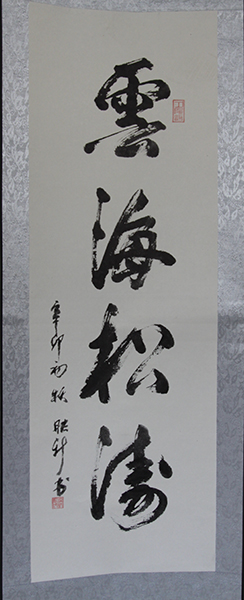 雲海松濤
辛卯初秋 联科書